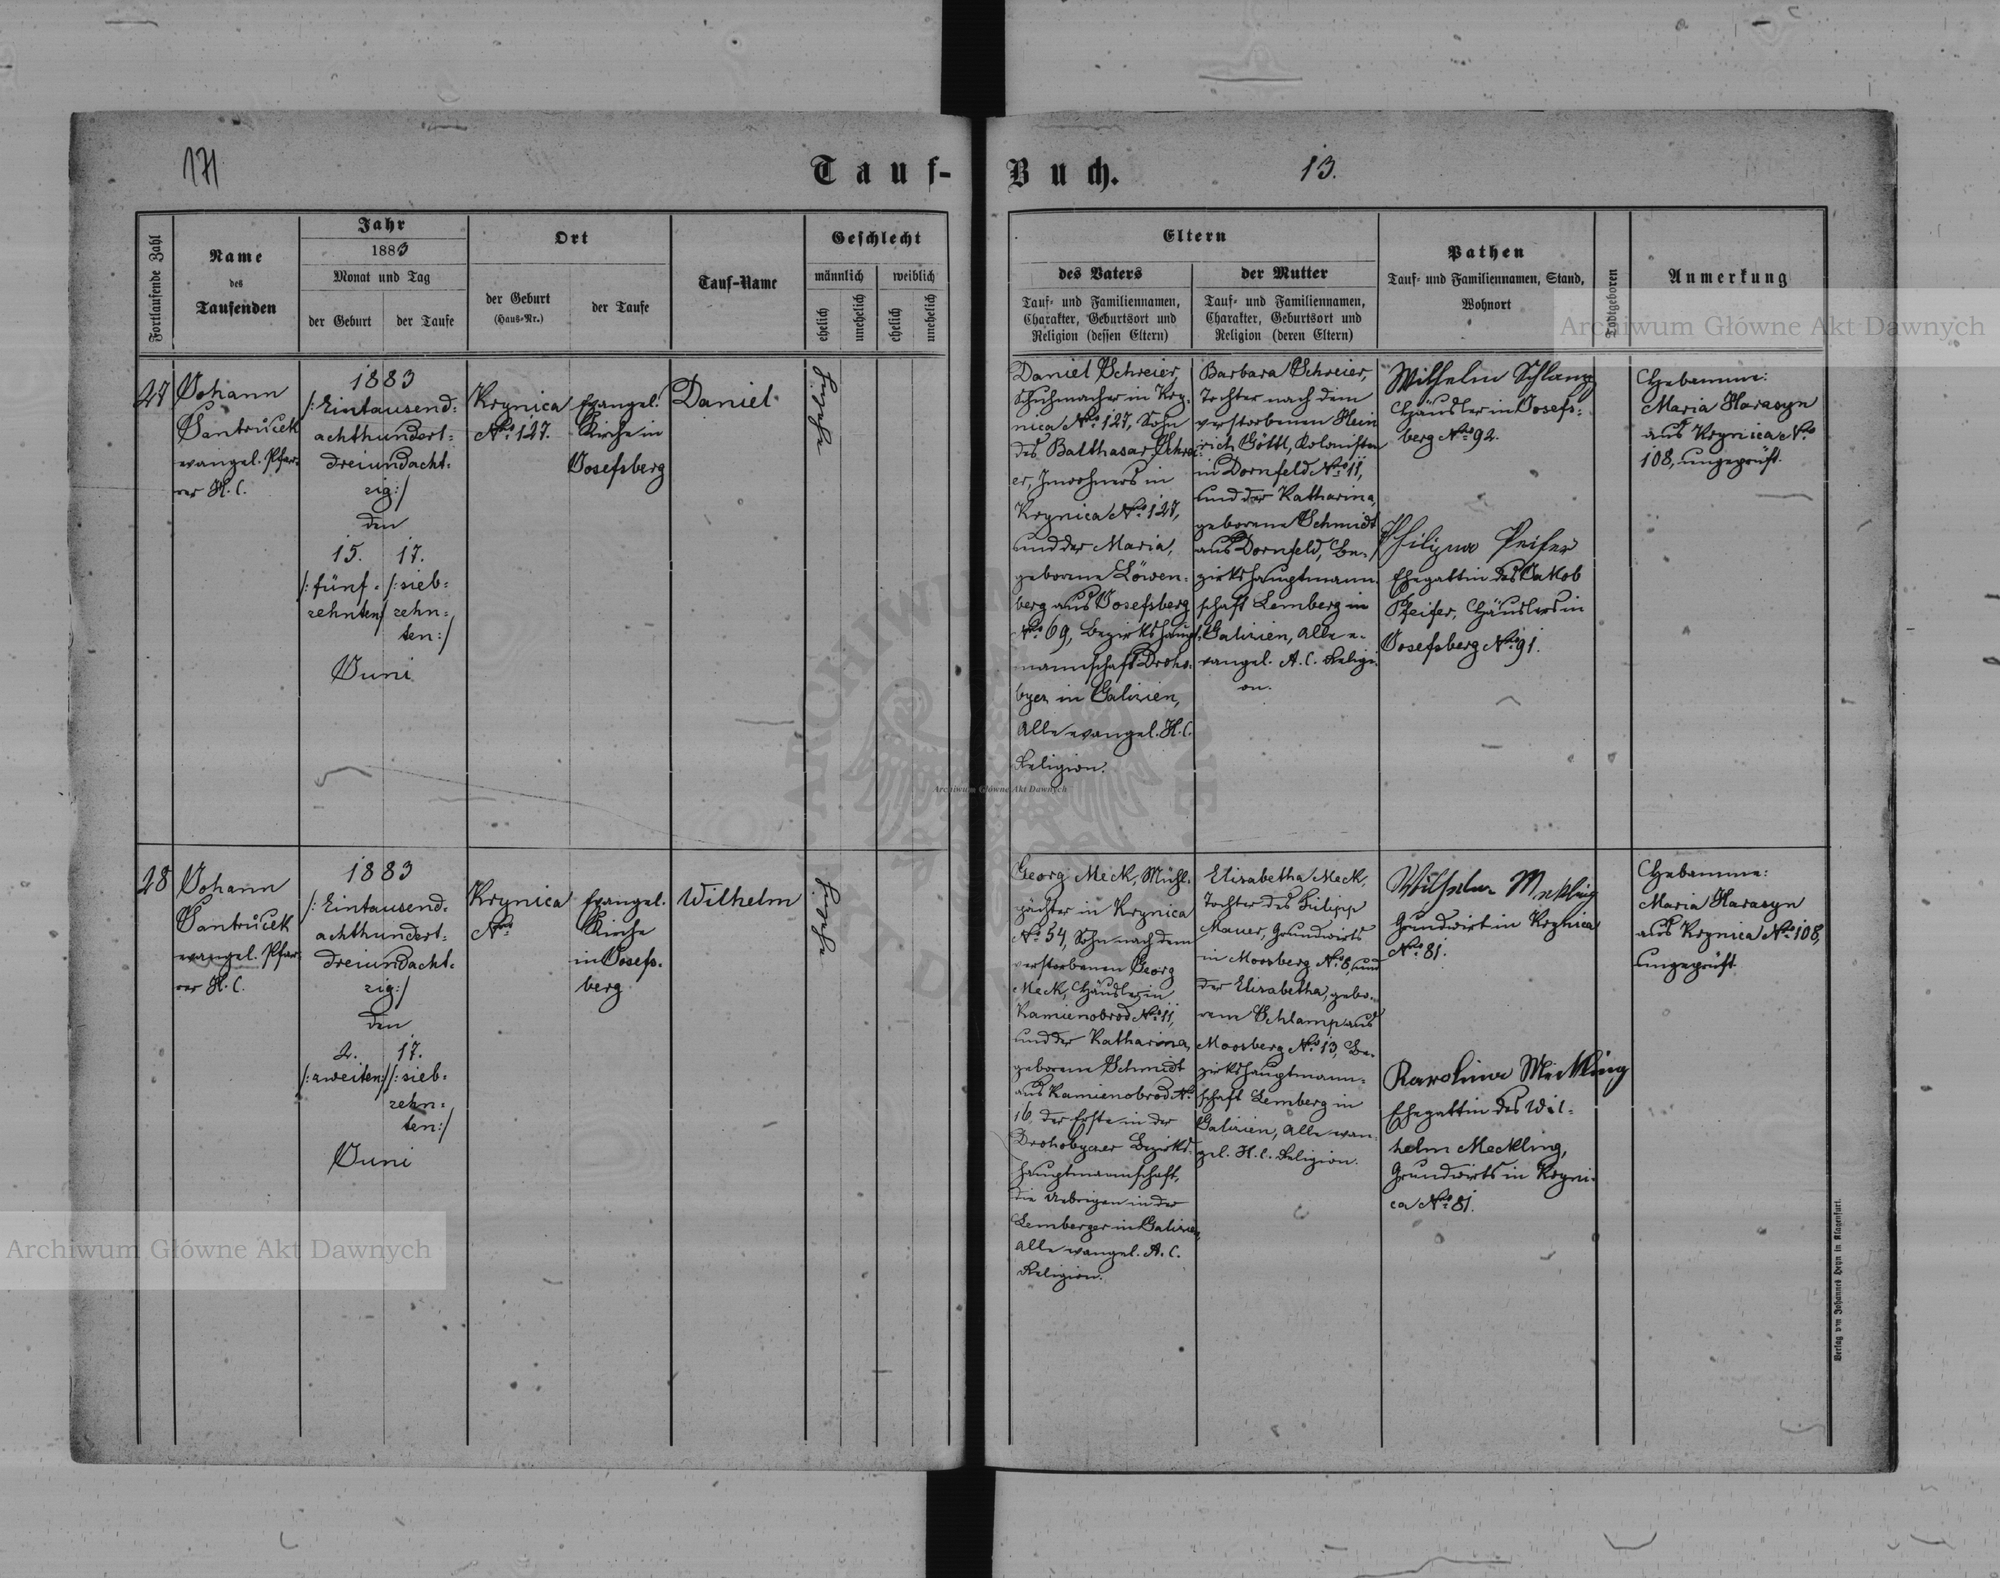 171
Tauf-Buch.
13.
Fortlaufende Zahl
Name
des
Taufenden
Jahr
1883
Monat und Tag
der Geburt
der Taufe
Ort
der Geburt
(Haus-Nr.)
der Taufe
Tauf-Name
Geschlecht
männlich
weiblich
ehelich
unehelich
ehelich
unehelich
Eltern
des Vaters
Tauf- und Familiennamen,
Charakter, Geburtsort und
Religion (dessen Eltern)
der Mutter
Tauf- und Familiennamen,
Charakter, Geburtsort und
Religion (deren Eltern)
Pathen
Tauf- und Familiennamen, Stand,
Wohnort
Todtgeboren
Anmerkung
27
Johann
Jantrůcek
evangel. Pfar-
rer H. C.
1883
/: Eintausend-
achthundert-
dreiundacht-
zig :/
den
15.
/: fünf-
zehnten :/
17.
/: sieb-
zehn-
ten :/
Juni
Krynica
No. 127.
Evangel.
Kirche in
Josefsberg
Daniel
Daniel Schreier,
Schuhmacher in Kry-
nica No. 127, Sohn
des Balthasar Schrei-
er, Inwohners in
Krynica No. 127,
und der Maria,
geborene Löwen-
berg aus Josefsberg
No. 69, Bezirkshaupt-
mannschaft Droho-
bycz in Galizien,
Alle evangel. H. C.
Religion.
Barbara Schreier,
Tochter nach dem
verstorbenen Hein-
rich Göttl, Kolonisten
in Dornfeld No. 11,
und der Katharina,
geborene Schmidt
aus Dornfeld, Be-
zirkshauptmann-
schaft Lemberg in
Galizien, Alle e-
vangel. A. C. Religi-
on.
Wilhelm Schlamp
Häusler in Josefs-
berg No. 92.
Philipina Peifer
Ehegattin des Jakob
Pfeifer, Häuslers in
Josefsberg No. 91.
Hebamme:
Maria Harasyn
aus Krynica No.
108, ungeprüft.
28
Johann
Jantrůcek
evangel. Pfar-
rer H. C.
1883
/: Eintausend-
achthundert-
dreiundacht-
zig :/
den
2.
/: zweiten :/
17.
/: sieb-
zehn-
ten :/
Juni
Krynica
No.
Evangel.
Kirche
in Josefs-
berg
Wilhelm
Georg Meck, Mühl-
pächter in Krynica
No. 54, Sohn nach dem
verstorbenen Georg
Meck, Häusler in
Kamienobrod No. 11,
und der Katharina,
geborene Schmidt
aus Kamienobrod No.
16, der Erste in der
Drohobyczer Bezirks-
hauptmannschaft,
die Uebrigen in der
Lemberger in Galizien,
Alle evangel. A. C.
Religion.
Elisabetha Meck,
Tochter des Filipp
Mauer, Grundwirts
in Moosberg No. 8, und
der Elisabetha, gebo-
rene Schlamp aus
Moosberg No. 13, Be-
zirkshauptmann-
schaft Lemberg in
Galizien, Alle evan-
gel. H. C. Religion.
Wilhelm Mekling
Grundwirt in Krynica
No. 81.
Karolina Meckling
Ehegattin des Wil-
helm Meckling,
Grundwirts in Kryni-
ca No. 81.
Hebamme:
Maria Harasyn
aus Krynica No. 108,
ungeprüft.
Verlag von Johannes Heyn in Klagenfurt.
Archiwum Główne Akt Dawnych
Archiwum Główne Akt Dawnych
Archiwum Główne Akt Dawnych